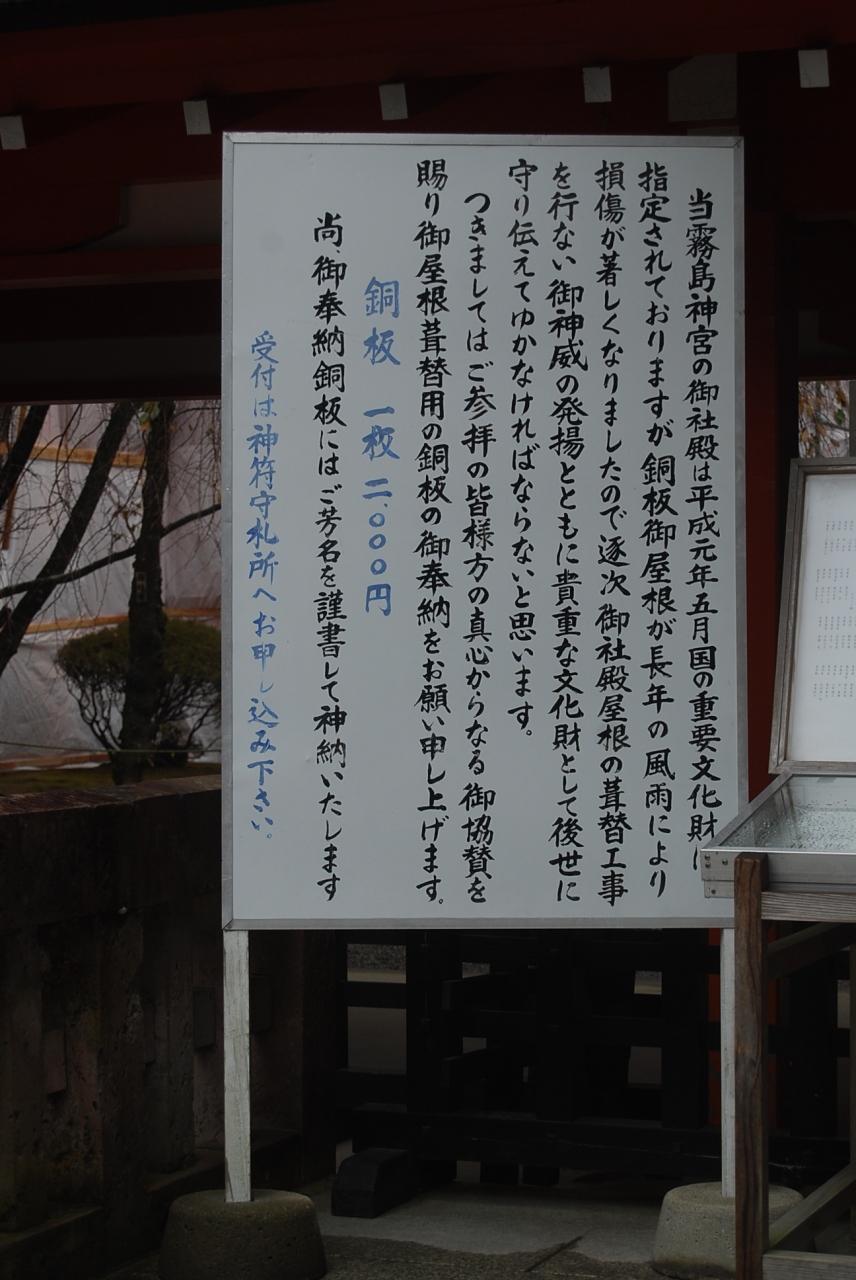 当霧島神宮の御社殿は平成元年五月国の重要文化財に
指定されておりますが銅板御屋根が長年の風雨により
損傷が著しくなりましたので逐次御社殿屋根の葺替工事
を行ない御神威の発揚とともに貴重な文化財として後世に
守り伝えてゆかなければならないと思います。
つきましてはご参拝の皆様方の真心からなる御協賛を
賜り御屋根葺替用の銅板の御奉納をお願い申し上げます。
銅板 一枚 二、〇〇〇円
尚、御奉納銅板にはご芳名を謹書して神納いたします
受付は神符守札所へお申し込み下さい。